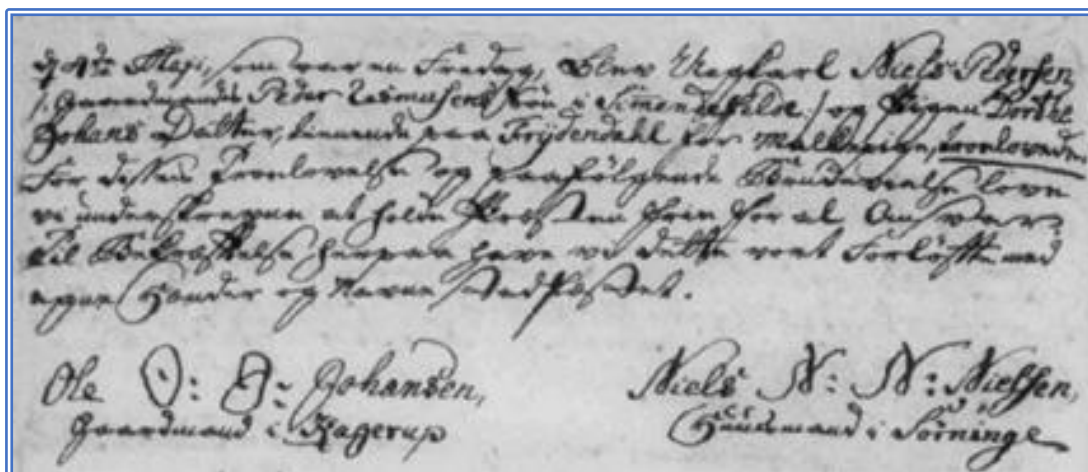 d. 4de Maji, som var en Fredag, blev Ungkarl Niels Pedersen
/: Gaardmand Peder Rasmusens Søn i :/ og Pigen Dorthe
Johans Datter, tienende paa Frydendahl for Malkepige, troelovede.
For dessen Troelovelse og paafølgende Ægtevielse love
vi underskrevne at holde Præsten frie for al Ansvar.
Til Bekræftelse herpaa have vi dette vort Forløfte med
egne Hænder og Navne vedfæstet.
Ole O: J: Johansen, Niels N: N: Nielsen,
Gaardmand i Kagerup Huusmand i Sørninge